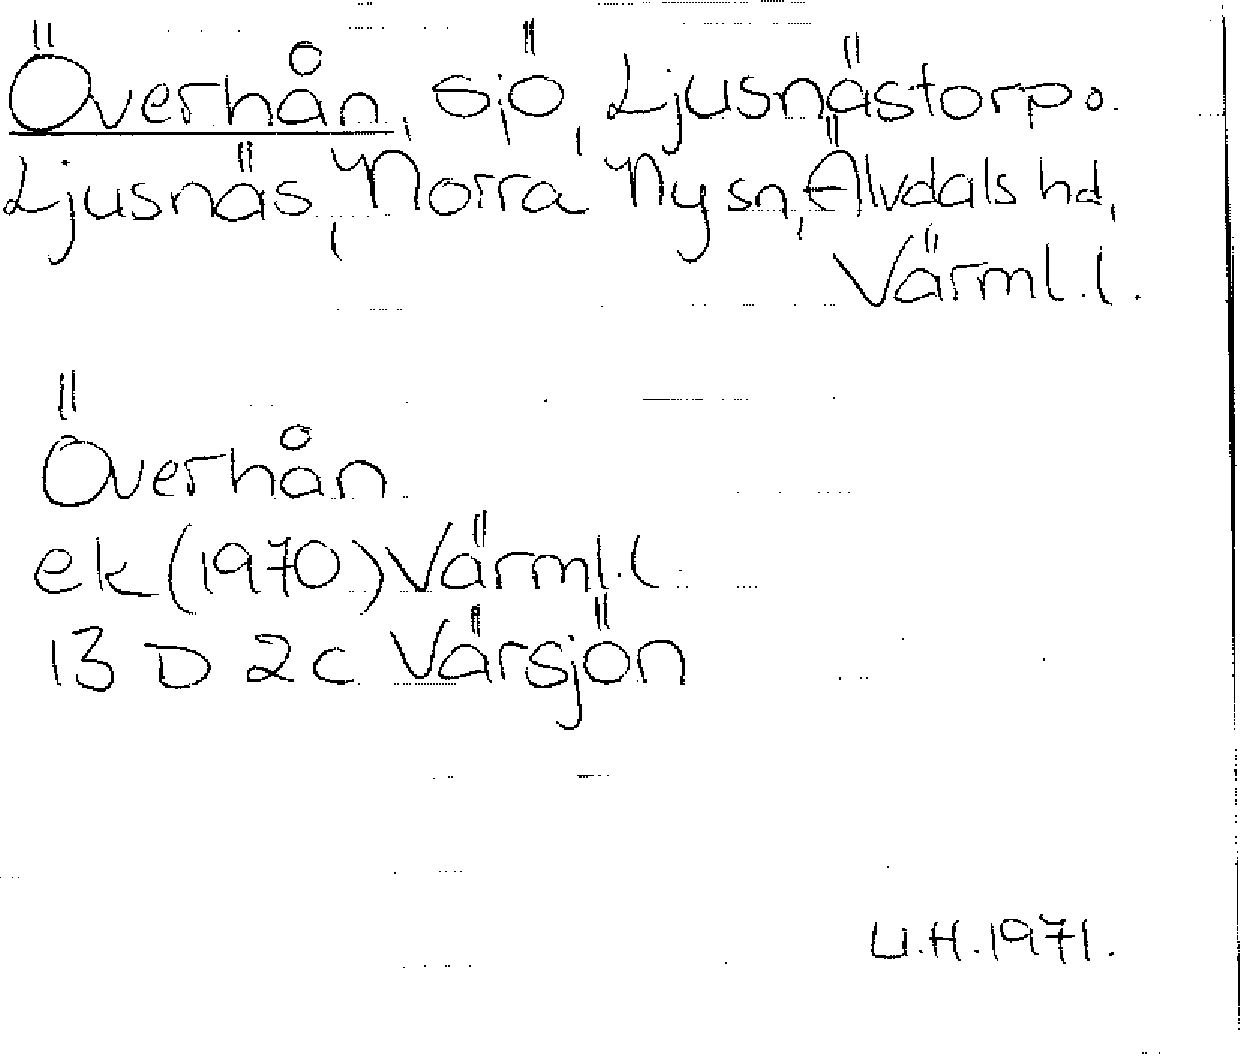 Överhån, sjö, Ljusnästorp o.
Ljusnäs, Norra Ny sn, Älvdals hd,
Värml.l.
Överhån
ek (1970) Värml.l
13 D 2c Värsjön
U.H. 1971.